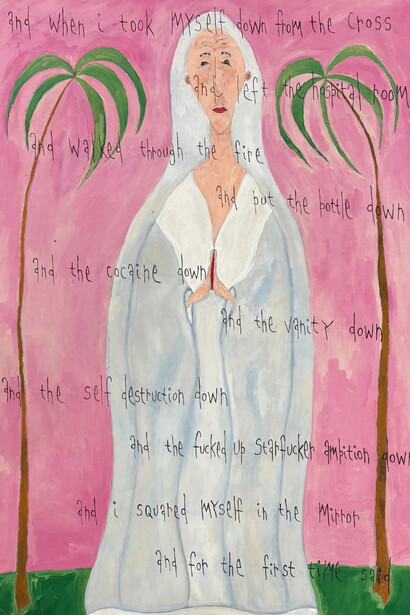 and when i took MYself down from the cross
and left the hospital room
and walked through the fire
and put the bottle down
and the cocaine down
and the vanity down
and the self destruction down
and the fucked up starfucker ambition down
and i squared MYself in the Mirror
and for the first time said